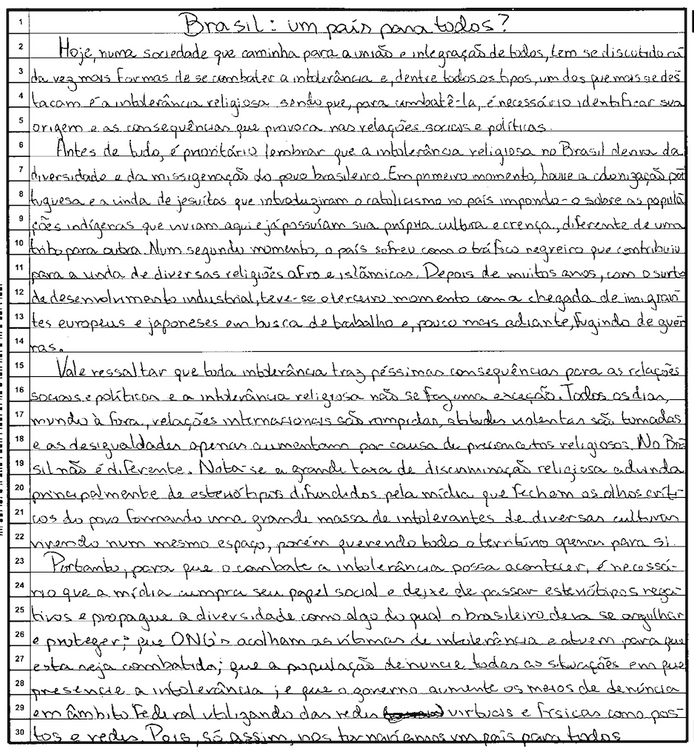 1 Brasil: um país para todos?
2 Hoje, numa sociedade que caminha para a união e integração de todos, tem se discutido ca
3 da vez mais formas de se combater a intolerância e, dentre todos os tipos, um dos que mais se des
4 tacam é a intolerância religiosa sendo que, para combatê-la, é necessário identificar sua
5 origem e as consequências que provoca nas relações sociais e políticas.
6 Antes de tudo, é prioritário lembrar que a intolerância religiosa no Brasil deriva da
7 diversidade e da missigenação do povo brasileiro. Em primeiro momento, houve a colonização por
8 tuguesa e a vinda de jesuítas que introduziram o catolicismo no país impondo-o sobre as popula
9 ções indígenas que viviam aqui e já possuíam sua própria cultura e crença, diferente de uma
10 tribo para outra. Num segundo momento, o país sofreu com o tráfico negreiro que contribuiu
11 para a vinda de diversas religiões afro e islâmicas. Depois de muitos anos, com o surto
12 de desenvolvimento industrial, teve-se o terceiro momento com a chegada de imigran
13 tes europeus e japoneses em busca de trabalho e, pouco mais adiante, fugindo de guer
14 ras.
15 Vale ressaltar que toda intolerância traz péssimas consequências para as relações
16 sociais e políticas e a intolerância religiosa não se faz uma exceção. Todos os dias,
17 mundo à fora, relações internacionais são rompidas, atitudes violentas são tomadas
18 e as desigualdades apenas aumentam por causa de preconceitos religiosos. No Bra
19 sil não é diferente. Nota-se a grande taxa de discriminação religiosa advinda
20 principalmente de esteriótipos difundidos pela mídia que fecham os olhos críti-
21 cos do povo formando uma grande massa de intolerantes de diversas culturas
22 vivendo num mesmo espaço, porém querendo todo o território apenas para si.
23 Portanto, para que o combate a intolerância possa acontecer, é necessá-
24 rio que a mídia cumpra seu papel social e deixe de passar esteriótipos nega-
25 tivos e propague a diversidade como algo do qual o brasileiro deva se orgulhar
26 e proteger; que ONG's acolham as vítimas de intolerância e atuem para que
27 esta seja combatida; que a população denuncie todas as situações em que
28 presencie a intolerância; e que o governo aumente os meios de denúncia
29 em âmbito Federal utilizando das redes virtuais e físicas como pos-
30 tos e redes. Pois, só assim, nos tornaríamos um país para todos